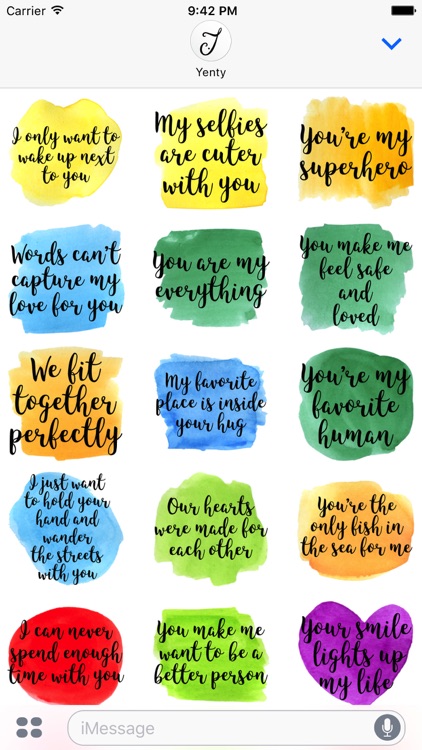 Carrier 9:42 PM
J
Yenty
I only want to
wake up next
to you
My selfies
are cuter
with you
You're my
superhero
Words can't
capture my
love for you
You are my
everything
You make me
feel safe
and
loved
We fit
together
perfectly
My favorite
place is inside
your hug
You're my
favorite
human
I just want
to hold your
hand and
wander
the streets
with you
Our hearts
were made for
each other
You're the
only fish in
the sea for me
I can never
spend enough
time with you
You make me
want to be a
better person
Your smile
lights up
my life
iMessage